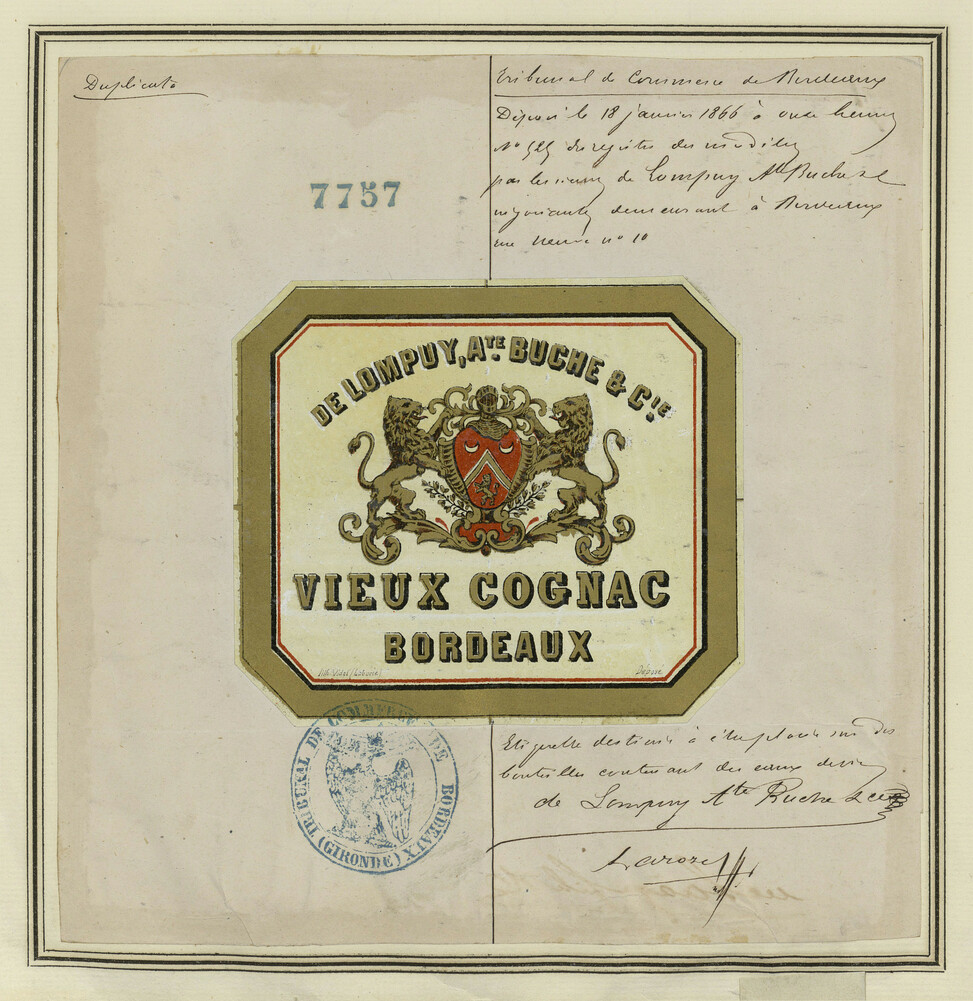 Duplicata
Tribunal de Commerce de Bordeaux
Déposé le 18 janvier 1866 à onze heures
N° 525 du registre des
par les sieurs de Lompuy Ate Buche &
négociants demeurant à Bordeaux
rue neuve n° 10
7757
DE LOMPUY, ATE. BUCHE & CIE.
VIEUX COGNAC
BORDEAUX
Lith. 
Déposé
TRIBUNAL DE COMMERCE DE BORDEAUX
(GIRONDE)
Etiquette destinée à être placée sur des
bouteilles contenant des eaux de vie
de Lompuy Ate Buche & Cie
Laroze